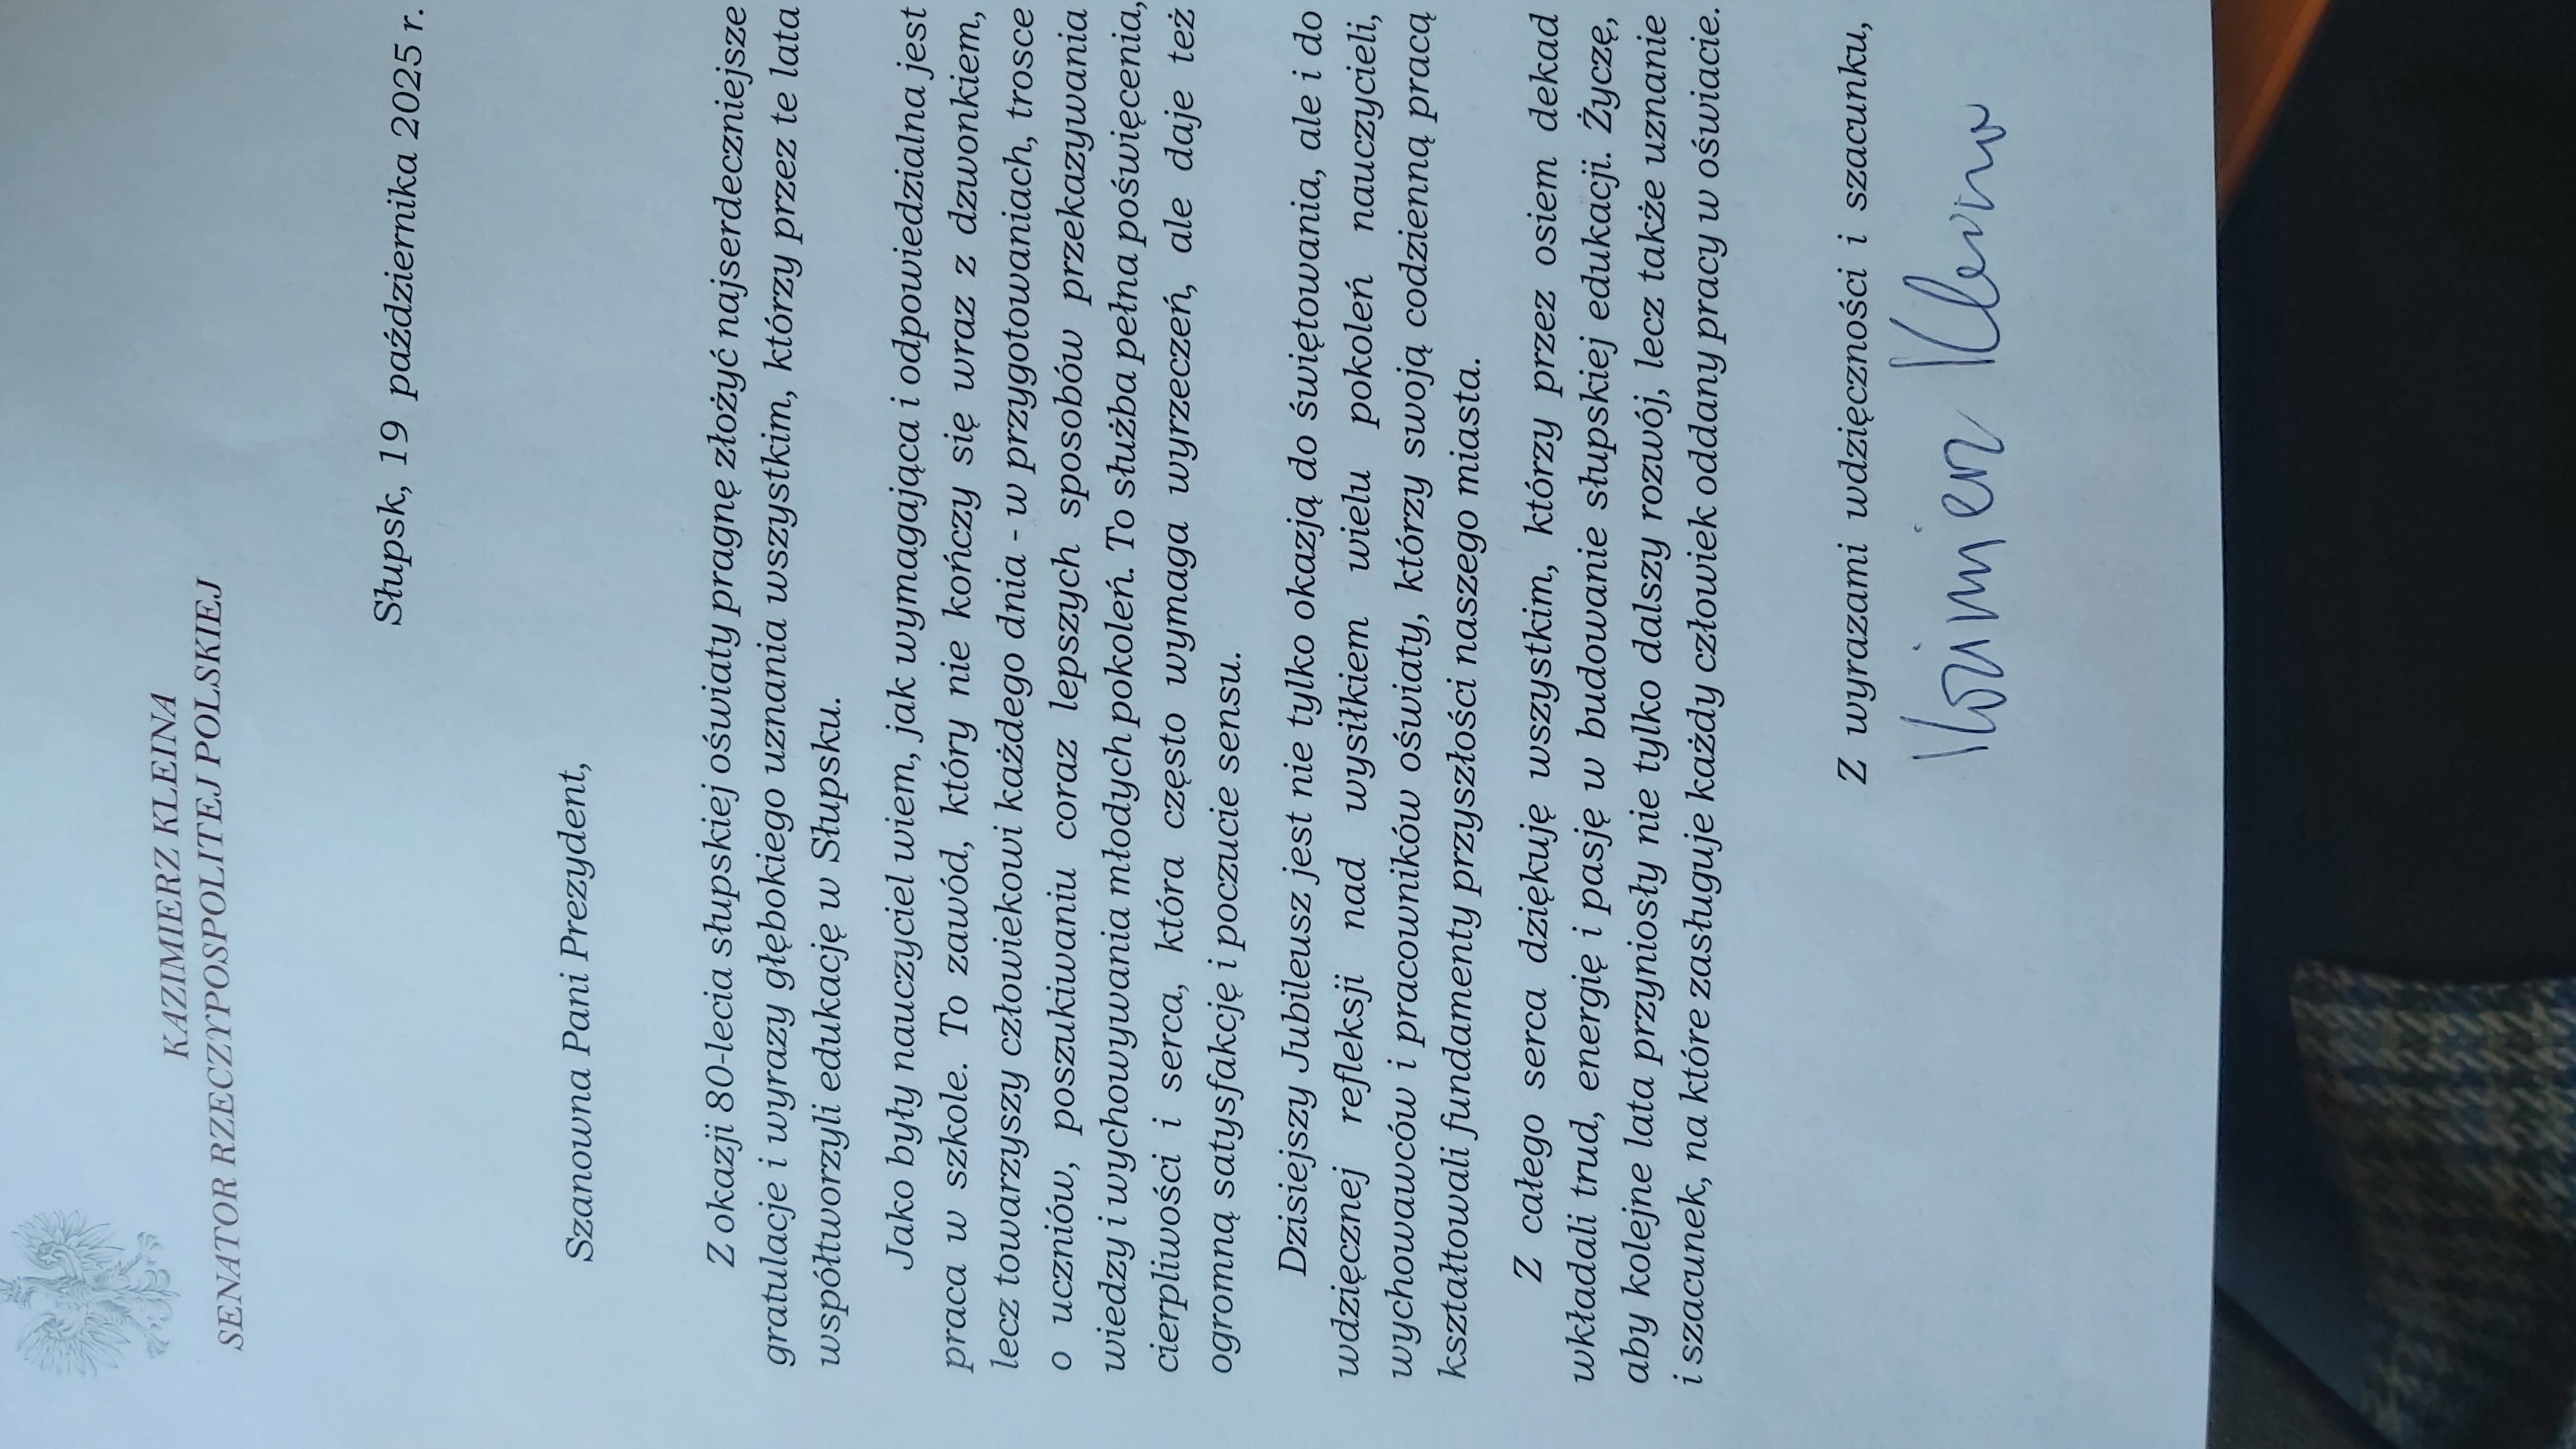 KAZIMIERZ KLEINA
SENATOR RZECZYPOSPOLITEJ POLSKIEJ
Słupsk, 19 października 2025 r.
Szanowna Pani Prezydent,
Z okazji 80-lecia słupskiej oświaty pragnę złożyć najserdeczniejsze
gratulacje i wyrazy głębokiego uznania wszystkim, którzy przez te lata
współtworzyli edukację w Słupsku.
Jako były nauczyciel wiem, jak wymagająca i odpowiedzialna jest
praca w szkole. To zawód, który nie kończy się wraz z dzwonkiem,
lecz towarzyszy człowiekowi każdego dnia - w przygotowaniach, trosce
o uczniów, poszukiwaniu coraz lepszych sposobów przekazywania
wiedzy i wychowywania młodych pokoleń. To służba pełna poświęcenia,
cierpliwości i serca, która często wymaga wyrzeczeń, ale daje też
ogromną satysfakcję i poczucie sensu.
Dzisiejszy Jubileusz jest nie tylko okazją do świętowania, ale i do
wdzięcznej refleksji nad wysiłkiem wielu pokoleń nauczycieli,
wychowawców i pracowników oświaty, którzy swoją codzienną pracą
kształtowali fundamenty przyszłości naszego miasta.
Z całego serca dziękuję wszystkim, którzy przez osiem dekad
wkładali trud, energię i pasję w budowanie słupskiej edukacji. Życzę,
aby kolejne lata przyniosły nie tylko dalszy rozwój, lecz także uznanie
i szacunek, na które zasługuje każdy człowiek oddany pracy w oświacie.
Z wyrazami wdzięczności i szacunku,
Kazimierz Kleina